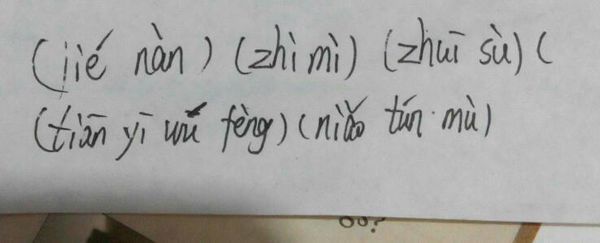 (jié nàn) (zhì mì) (zhuī sù) (
(tiān yī wú fèng) (niǎo tún mù)
oo?